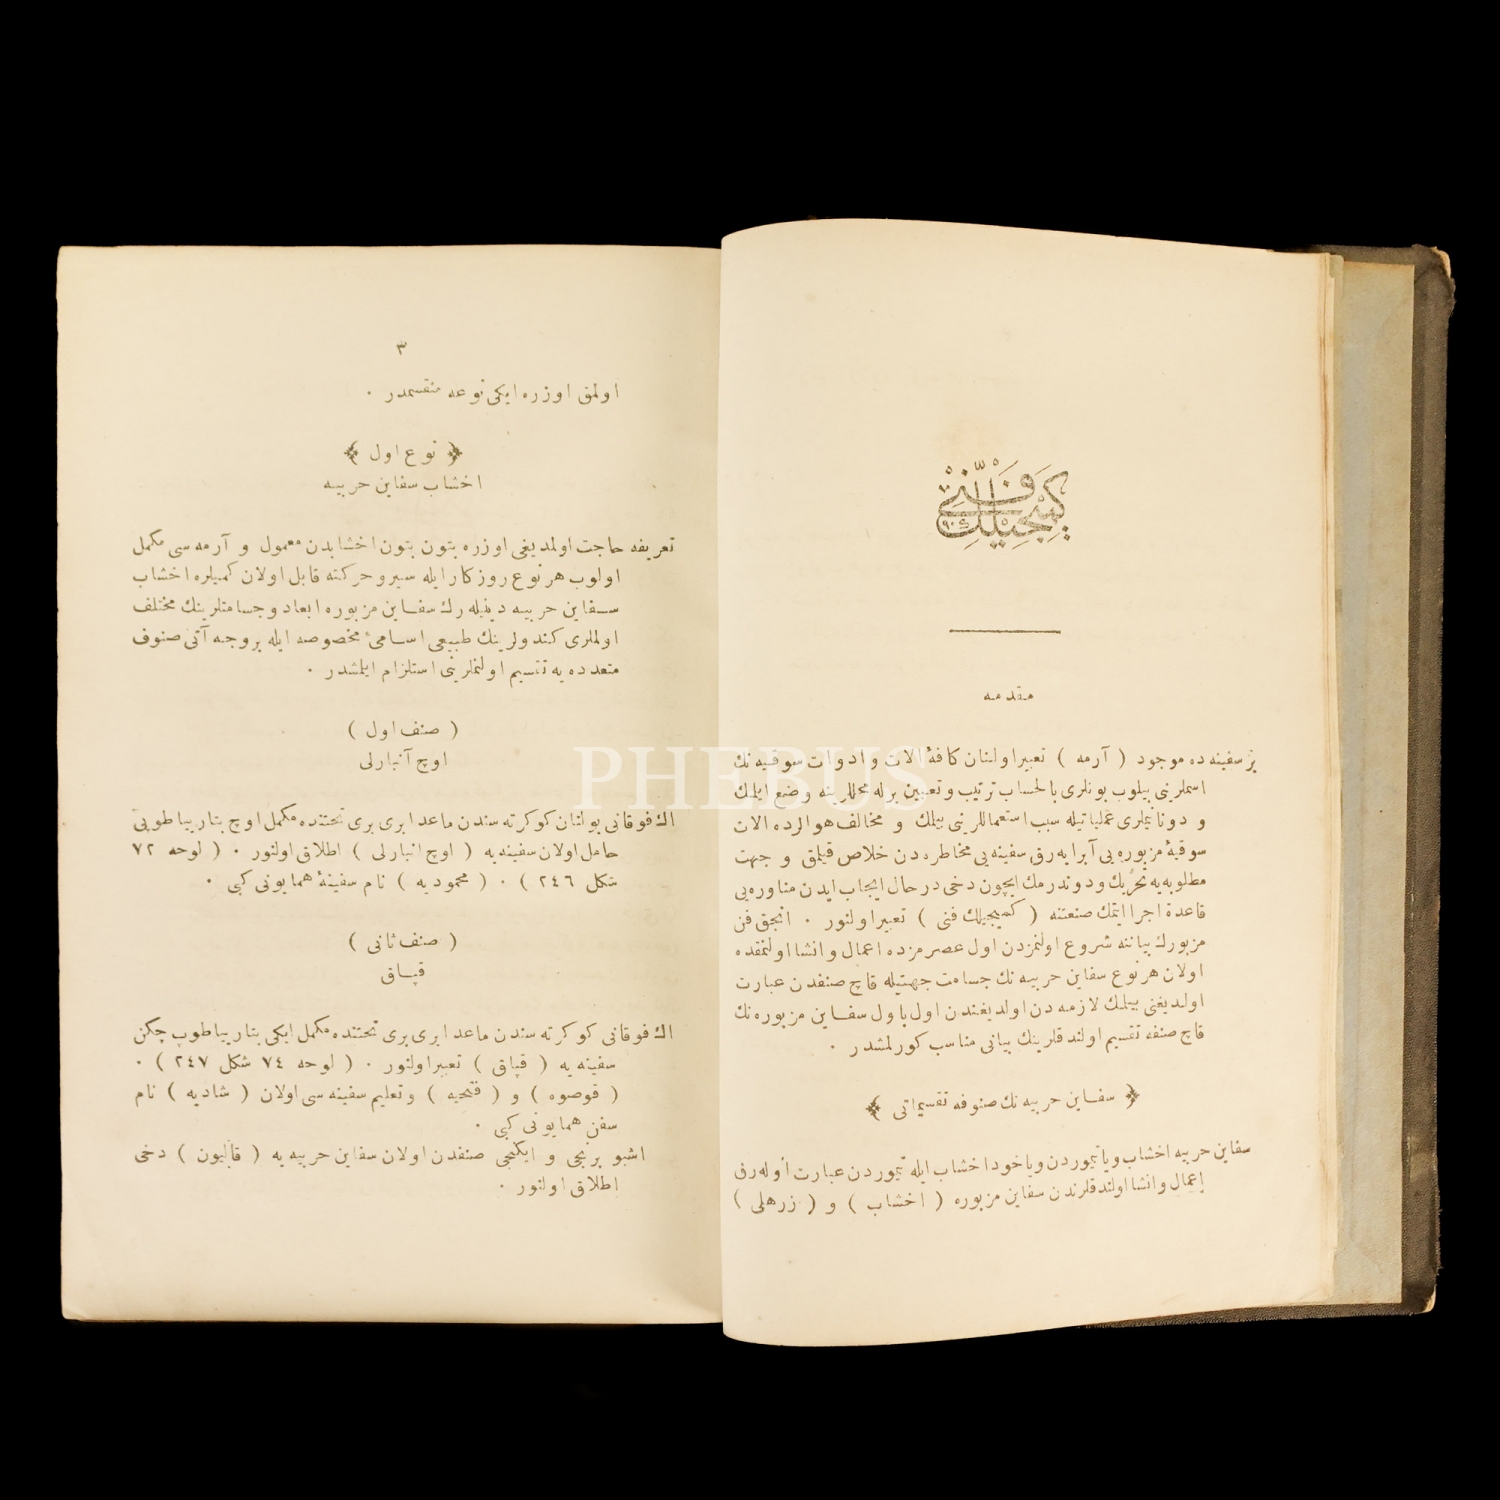 گميجيلك فنی
مقدمه
بر سفينه ده موجود ( آرمه ) تعبير اولنان كافۀ آلات و ادوات سوقيه نك
اسملرينی بيلوب بونلری بالحساب ترتيب و تعيين برله محللرينه وضع ايلمك
و دوناتيملری عملياتيله سبب استعماللرينی بيلمك و مخالف هوالرده آلات
سوقيۀ مزبوره يی آبرايه رق سفينه يی مخاطره دن خلاص قيلمق و جهت
مطلوبه يه تحريك و دوندرمك ايچون دخی درحال ايجاب ايدن مناوره يی
قاعدة اجرا ايتمك صنعتنه ( كميجيلك فنی ) تعبير اولنور . انجق فن
مزبورك بياننه شروع اولنمزدن اول عصرمزده اعمال و انشا اولنمقده
اولان هر نوع سفاين حربيه نك جسامت جهتيله قاچ صنفدن عبارت
اولديغنی بيلمك لازمه دن اولديغندن اول باول سفاين مزبوره نك
قاچ صنفه تقسيم اولندقلرينك بيانی مناسب كورلمشدر .
﴿ سفاين حربيه نك صنوفه تقسيماتی ﴾
سفاين حربيه اخشاب و يا تيموردن و ياخود اخشاب ايله تيموردن عبارت اوله رق
اعمال و انشا اولندقلرندن سفاين مزبوره ( اخشاب ) و ( زرهلی )
٣
اولمق اوزره ايكی نوعه منقسمدر .
﴿ نوع اول ﴾
اخشاب سفاين حربيه
تعريفه حاجت اولمديغی اوزره بتون بتون اخشابدن معمول و آرمه سی مكمل
اولوب هر نوع روزكار ايله سير و حركته قابل اولان كميلره اخشاب
سفاين حربيه دينيله رك سفاين مزبوره ابعاد و جسامتلرينك مختلف
اولملری كندولرينك طبيعی اسامئ مخصوصه ايله بروجه آتی صنوف
متعدده يه تقسيم اولنملرينی استلزام ايلمشدر .
( صنف اول )
اوچ آنبارلی
اك فوقانی بولنان كوكرته سندن ماعدا بری بری تحتنده مكمل اوچ بتاريا طوپی
حامل اولان سفينه يه ( اوچ انبارلی ) اطلاق اولنور . ( لوحه ٧٢
شكل ٢٤٦ ) . ( محموديه ) نام سفينۀ همايونی كبی .
( صنف ثانی )
قپاق
اك فوقانی كوكرته سندن ماعدا بری بری تحتنده مكمل ايكی بتاريا طوپ چكن
سفينه يه ( قپاق ) تعبير اولنور . ( لوحه ٧٤ شكل ٢٤٧ ) .
( قوصوه ) و ( فتحيه ) و تعليم سفينه سی اولان ( شاديه ) نام
سفن همايونی كبی .
اشبو برنجی و ايكنجی صنفدن اولان سفاين حربيه يه ( قاليون ) دخی
اطلاق اولنور .
PHEBUS